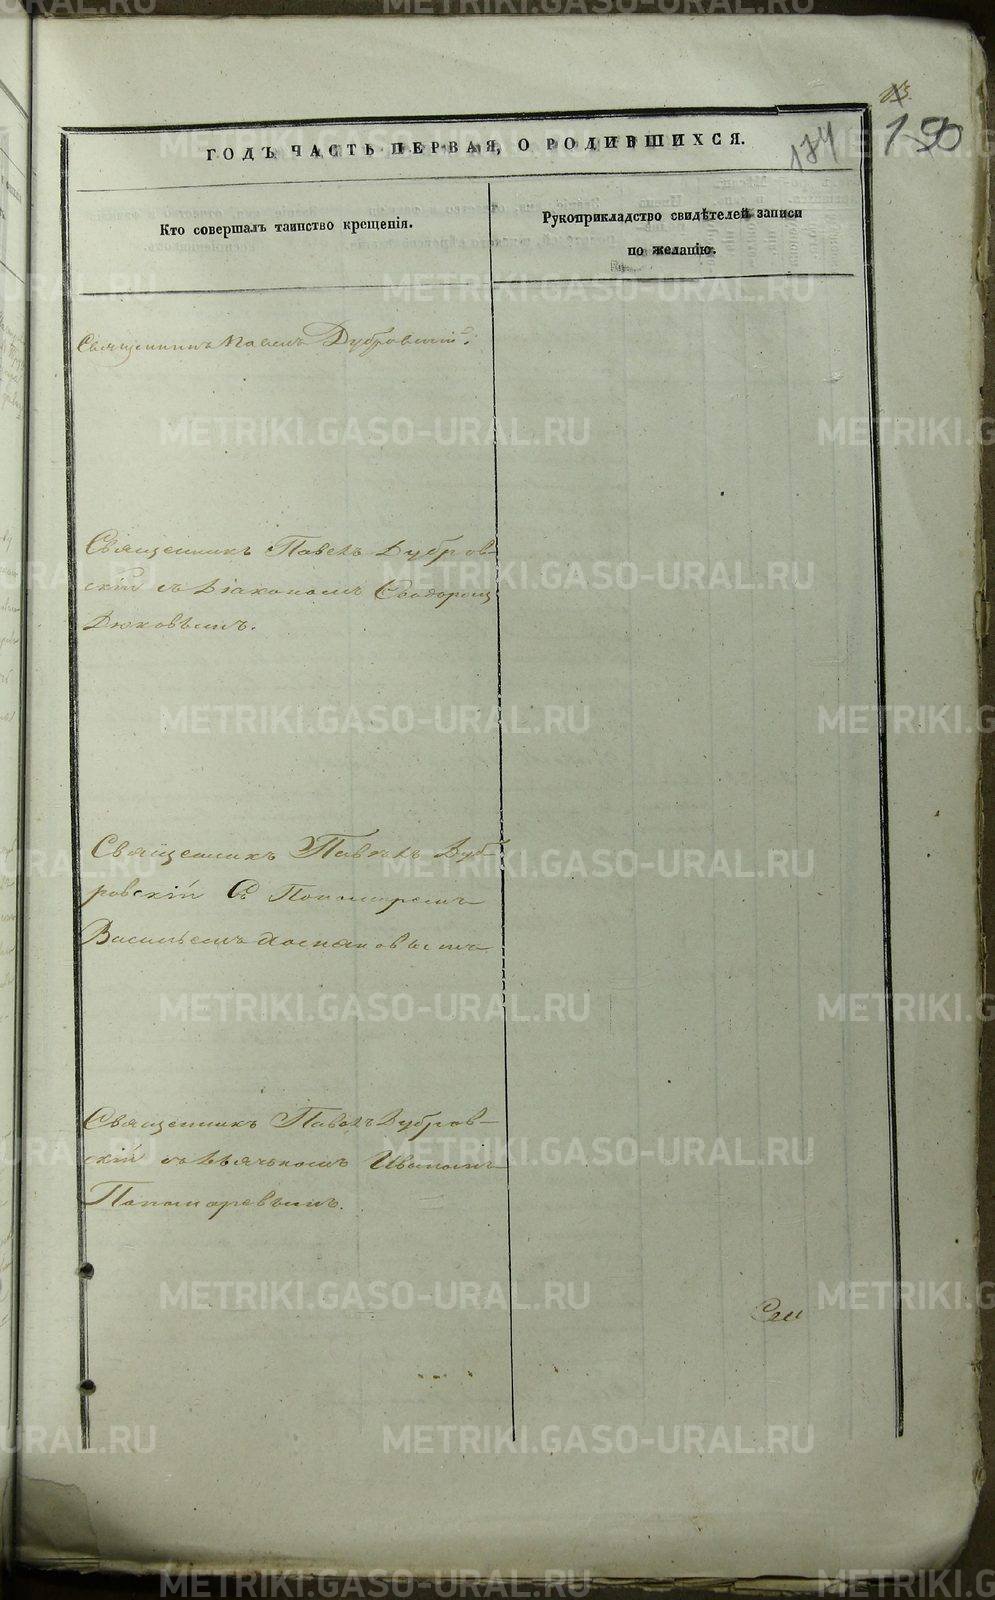 190
174
ГОДЪ ЧАСТЬ ПЕРВАЯ, О РОДИВШИХСЯ.
Кто совершалъ таинство крещенія.
Рукоприкладство свидѣтелей записи
по желанію.
Священникъ Павелъ Дубровскій
Священникъ Павелъ Дубров-
скій съ Діакономъ
Священникъ Павелъ Дуб-
ровскій Съ Пономаремъ
Васильемъ
Священникъ Павелъ Дубров-
скій съ Дьячкомъ Иваномъ
Пономаревымъ.
METRIKI.GASO-URAL.RU